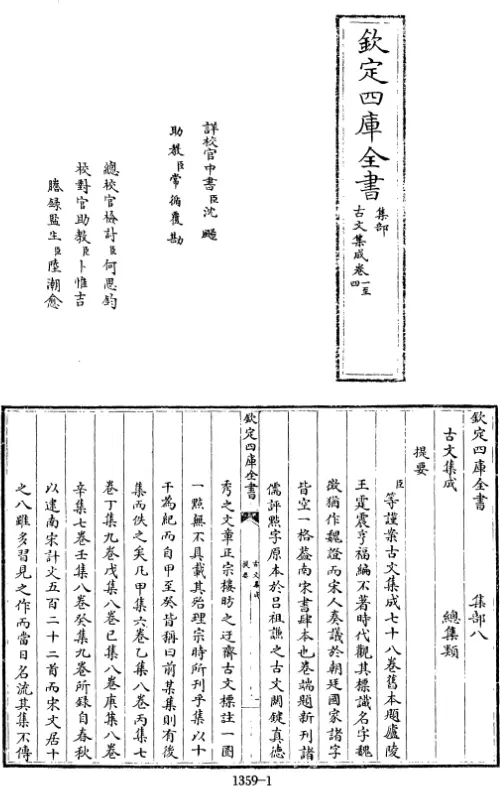 欽定四庫全書
集部
古文集成卷一至四
詳校官中書臣沈颺
助教臣常循覆勘
總校官檢討臣何思鈞
校對官助教臣卜惟吉
謄錄監生臣陸潮愈
欽定四庫全書 集部八
古文集成 總集類
提要
臣等謹案古文集成七十八卷舊本題廬陵
王霆震亨福編不著時代觀其標識名字魏
徵猶作魏證而宋人奏議於朝廷國家諸字
皆空一格葢南宋書肆本也卷端題新刊諸
儒評點字原本於吕祖謙之古文闗鍵真德
欽定四庫全書
古文集成
提要
一
秀之文章正宗樓昉之迂齋古文標註一圏
一㸃無不具載其殆理宗時所刊乎集以十
干為紀而自甲至癸皆稱曰前某集則有後
集而佚之矣凡甲集六卷乙集八卷丙集七
卷丁集九卷戊集八卷己集八卷庚集八卷
辛集七卷壬集八卷癸集九卷所録自春秋
以逮南宋計文五百二十二首而宋文居十
之八雖多習見之作而當日名流其集不傳
1359-1